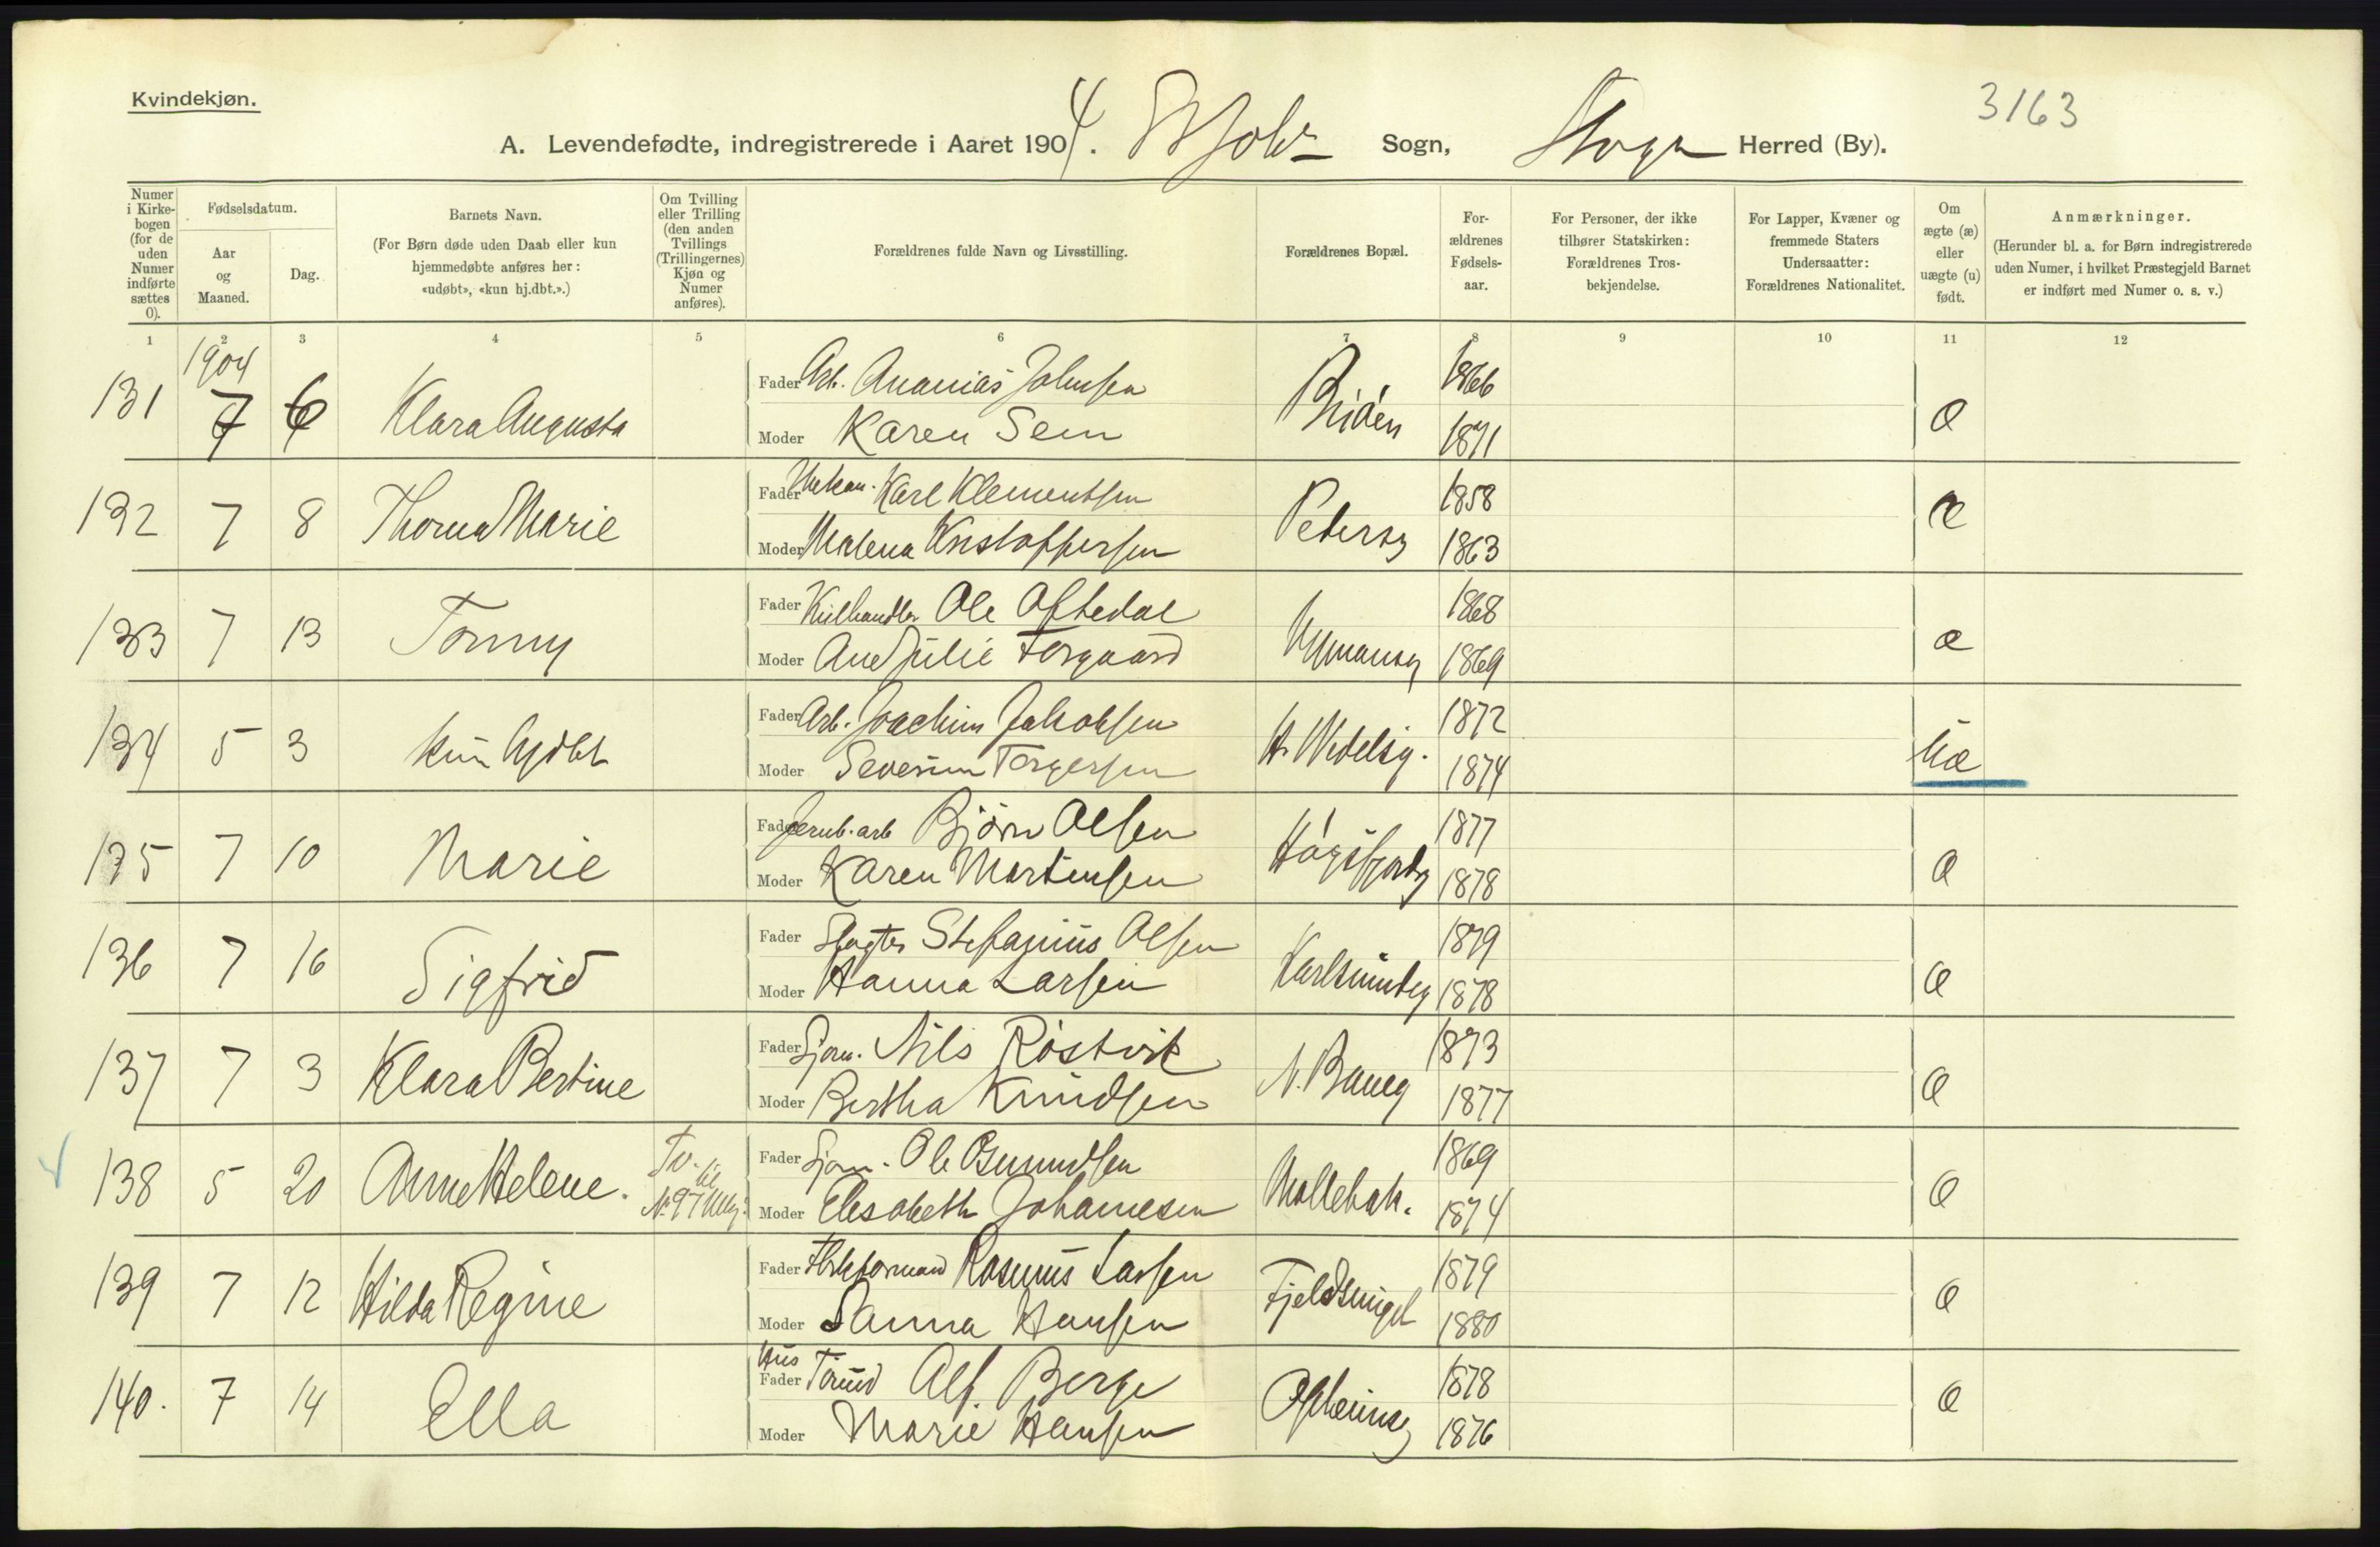 Kvindekjøn.
3163
A. Levendefødte, indregistrerede i Aaret 1904. St Joh's Sogn, Stavgr Herred (By).
Numer i Kirke-bogen (for de uden Numer indførte sættes 0).
Fødselsdatum.
Aar og Maaned.
Dag.
Barnets Navn.
(For Børn døde uden Daab eller kun hjemmedøbte anføres her: «udøbt», «kun hj.dbt.».)
Om Tvilling eller Trilling (den anden Tvillings (Trillingernes) Kjøn og Numer anføres).
Forældrenes fulde Navn og Livsstilling.
Forældrenes Bopæl.
For-ældrenes Fødsels-aar.
For Personer, der ikke tilhører Statskirken: Forældrenes Tros-bekjendelse.
For Lapper, Kvæner og fremmede Staters Undersaatter: Forældrenes Nationalitet.
Om ægte (æ) eller uægte (u) født.
Anmærkninger.
(Herunder bl. a. for Børn indregistrerede uden Numer, i hvilket Præstegjeld Barnet er indført med Numer o. s. v.)
1 2 3 4 5 6 7 8 9 10 11 12
1904
131 7 6 Klara Augusta Fader Arb. Ananias Johnsen 1866 æ
Moder Karen Sem 1871
132 7 8 Thorna Marie Fader Karl Klementsen Petersg 1858 æ
Moder Malena Kristoffersen 1863
133 7 13 Tonny Fader Ole Oftedal 1868 æ
Moder Ane Julie Torgaard 1869
134 5 3 kun hjdbt Fader Arb. Joachim Jakobsen H. Wedelsg. 1872 Uæ
Moder Severine Torgersen 1874
135 7 10 Marie Fader Jernb.arb Bjørn Olsen Høgsfjordg 1877 æ
Moder Karen Martinsen 1878
136 7 16 Sigfrid Fader Slagter Stefanius Olsen Karlsmindeg 1879 æ
Moder Hanna Larsen 1878
137 7 3 Klara Bertine Fader Sjøm. Nils Røstvik N. Baneg 1873 æ
Moder Bertha Knudsen 1877
138 5 20 Anne Helene. Tv. til No 97 Fader Sjøm. Ole Osmundsen Møllebak. 1869 æ
Moder Elisabeth Johannesen 1874
139 7 12 Hilda Regine Fader Rasmus Larsen Fjeldsmigel 1879 æ
Moder Sanna Hansen 1880
140. 7 14 Ella Hus Fader Tømd Alf Berge 1878 æ
Moder Marie Hansen 1876